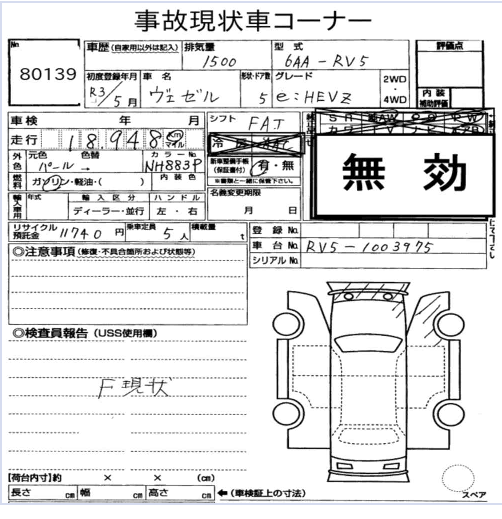 事故現状車コーナー
No 80139
車歴 (自家用以外は記入) 排気量 1500 型式 6AA-RV5 評価点
初度登録年月 R3/5月 車名 ヴェゼル 形状・ドア数 5 グレード e:HEVZ 2WD・4WD 内装補助評価
車検 年 月 シフト FAT
走行 18,948 km マイル 冷房 AAC
外色 元色 パール 色替 → カラーNo NH883P 内装色 新車整備手帳(保証書付) 有・無 ※書類と一緒に保管下さい。
無効
燃料 ガソリン・軽油・( )
名義変更期限 月 日
輸入車用 年式 輸入区分 ディーラー・並行 ハンドル 左・右
リサイクル預託金 11740 円 乗車定員 5 人 積載量 t
登録No.
車台No. RV5-1003975
シリアルNo.
◎注意事項 (修復・不具合箇所および状態等)
◎検査員報告 (USS使用欄)
F現状
【荷台内寸】約 × × (cm)
長さ cm 幅 cm 高さ cm ←(車検証上の寸法)
スペア